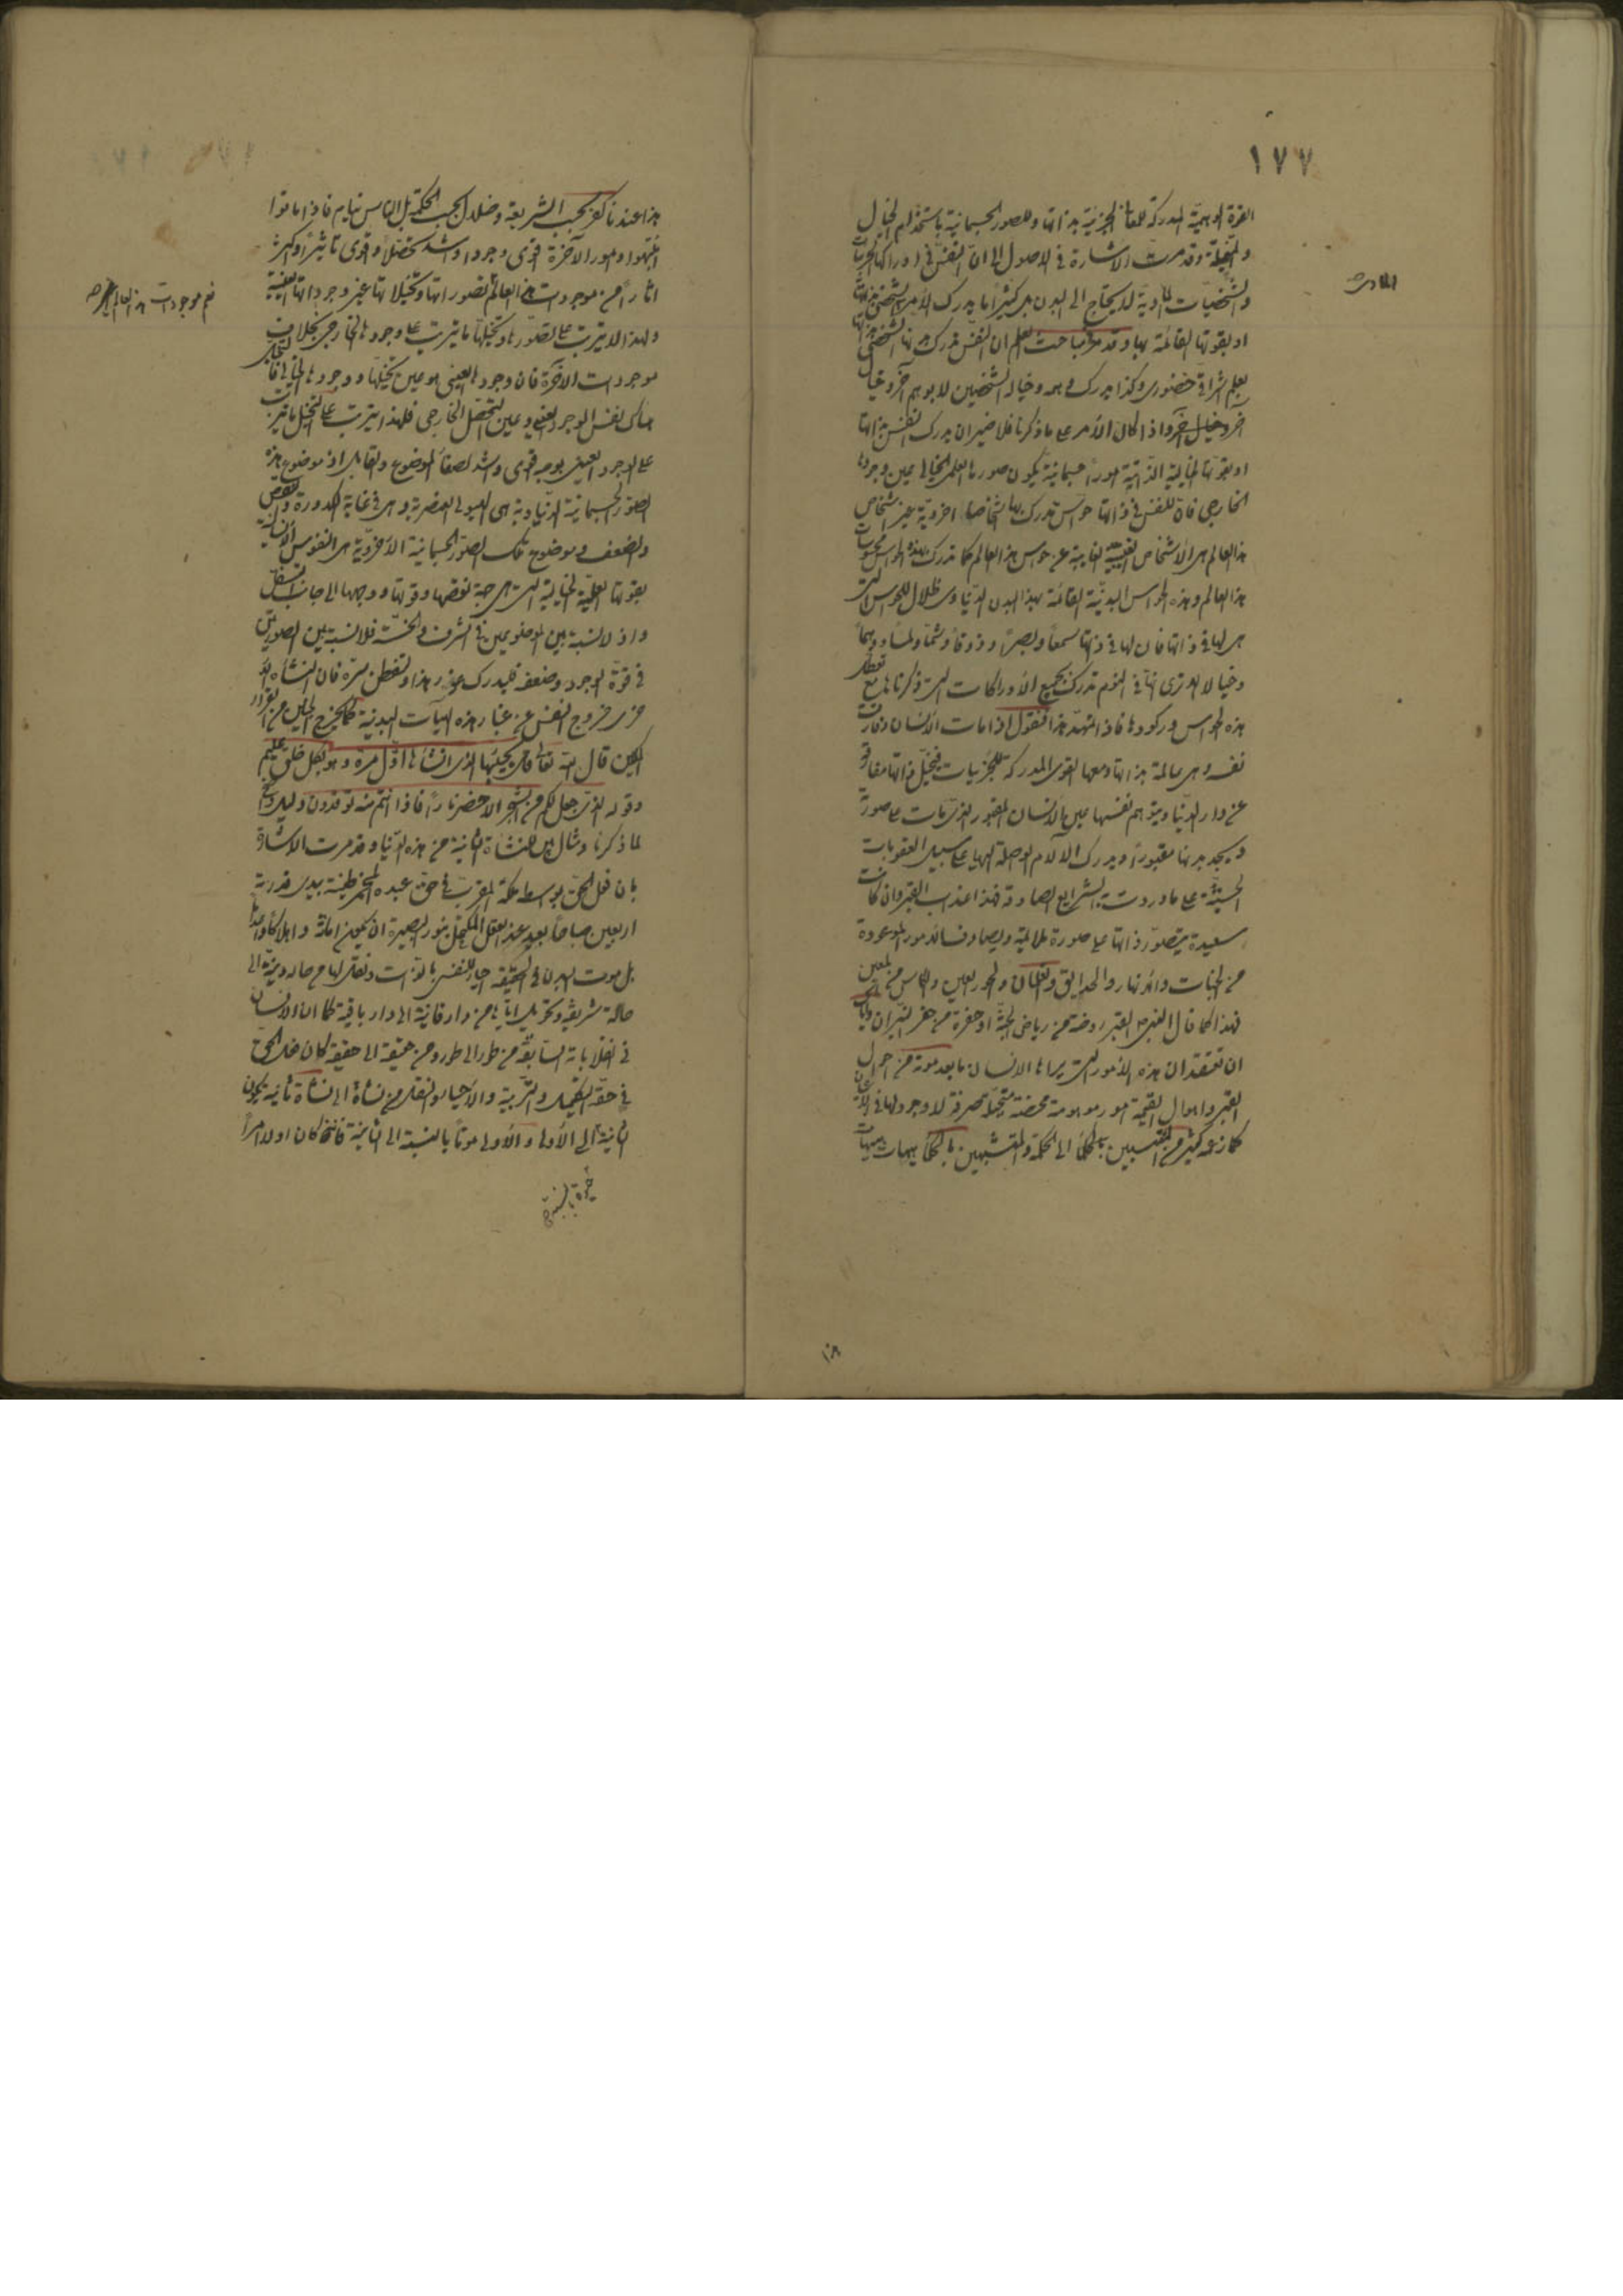 ١٧٧
القوة الوهمية المدركة للمعاني الجزئية بذاتها وللصور الجسمانية باستخدام الخيال
والمتخيلة وقد مرت الاشارة في الاصول الى ان النفس في ادراكها للجزئيات
والشخصيات المادية لا يحتاج الى البدن بل كثيرا ما يدرك الامر الشخصي بذاتها
او بقوتها القائمة بها وقد مر في مباحث العلم ان النفس تدرك بدنها الشخصي
بعلم اشراقي حضوري وكذا يدرك وهمه وخياله الشخصيين لا بوهم آخر وخيال
آخر واذا كان الامر على ما ذكرنا فلا ضير ان يدرك النفس بذاتها
او بقوتها الخيالية الذاتية امورا جسمانية يكون صورها العلمي الخيالي عين وجودها
الخارجي فان للنفس في ذاتها حواس تدرك بها اشخاصا اخروية غير اشخاص
هذا العالم هي الاشخاص الغيبية الغايبة عن حواس هذا العالم كما تدرك بهذه الحواس محسوسات
هذا العالم وهذه الحواس البدنية القائمة بهذا البدن الدنياوي ظلال للحواس التي
هي لها في ذاتها فان لها في ذاتها سمعا وبصرا وذوقا وشما ولمسا ووهما
وخيالا اولا ترى انها في النوم تدرك بجميع الادراكات التي ذكرناها مع تعطل
هذه الحواس وركودها فاذا تمهد هذا فنقول اذا مات الانسان وفارقت
نفسه وهي عالمة بذاتها ومعها القوى المدركة للجزئيات فتخيل ذاتها مفارقة
عن دار الدنيا ويتوهم نفسها عين الانسان المقبور الذي مات على صورته
ويجد بدنها مقبورا ويدرك الآلام الواصلة اليها على سبيل العقوبات
الحسية على ما وردت به الشرايع الصادقة فهذا عذاب القبر وان كانت
سعيدة يتصور ذاتها على صورة ملائمة ويصادف الامور الموعودة
من الجنات والانهار والحدايق والغلمان والحور العين والكاس من المعين
فهذا كما قال النبي ص القبر روضة من رياض الجنة او حفرة من حفر النيران واياك
ان تعتقد ان هذه الامور التي يراها الانسان ما بعد موته من احوال
القبر واهوال القيمة امور موهومة محضة متخيلة صرفة لا وجود لها في الاعيان
كما زعمه كثير من المنتسبين الى الحكمة والمتشبهين بالحكماء هيهات هيهات
المادي
هذا عندنا كفر بحسب الشريعة وضلال بحسب الحكمة بل الناس نيام فاذا ماتوا
انتبهوا وامور الآخرة اقوى وجودا واشد تحصلا واقوى تاثيرا واكثر
آثارا من موجودات هذا العالم تصوراتها وتخيلاتها غير وجوداتها العينية
ولهذا لا يترتب على تصورها وتخيلها ما يترتب على وجودها الخارجي بخلاف
موجودات الآخرة فان وجودها العيني هو عين تخيلها ووجودها الخيالي فالتخيل
هناك نفس الوجود العيني وعين التحصل الخارجي فلهذا يترتب على التخيل ما يترتب
على الوجود العيني بوجه اقوى واشد لصفاء الموضوع والقابل اذ موضوع هذه
الصور الجسمانية الدنياوية هي الهيولى العنصرية وهي في غاية الكدورة والنقص
والضعف وموضوع تلك الصور الجسمانية الاخروية هي النفوس الانسانية
بقوتها العلمية الخيالية التي هي جهة نقصها وقوتها ووجهها الى جانب السفل
واذ لا نسبة بين الموضوعين في الشرف والخسة فلا نسبة بين الصورتين
في قوة الوجود وضعفه فليدرك غور هذا وليتفطن سره فان النشأة
خروج النفس عن غبار هذه الهيآت البدنية كما يخرج الجنين من القرار
المكين قال الله تعالى قل يحييها الذي انشاها اول مرة وهو بكل خلق عليم
وقوله الذي جعل لكم من الشجر الاخضر نارا فاذا انتم منه توقدون دليل واضح
لما ذكرنا ومثال بين للنشاة الثانية من هذه الدنيا وقد مرت الاشارة
بان فعل الحق بواسطة ملكه المقرب في حق عبده المخمر طينته بيدي قدرته
اربعين صباحا بعيد عند العقل المكتحل بنور البصيرة ان يكون اماتة واهلاكا واعداما
بل موت البدن في الحقيقة احياء للنفس بالذات ونقل لها من حالة دنية الى
حالة شريفة وتحويل اياها من دار فانية الى دار باقية كما ان الانسان
في انقلاباته السابقة من طور الى طور ومن حقيقة الى حقيقة كان فعل الحق
في حقه التكميل والتربية والاحياء والنقل من نشاة الى نشاة ثانية يكون
الثانية الى الاولى والاولى موتا بالنسبة الى الثانية فانه كان اولا امرا
نعم موجودات هذا العالم
حيوة بالنسبة